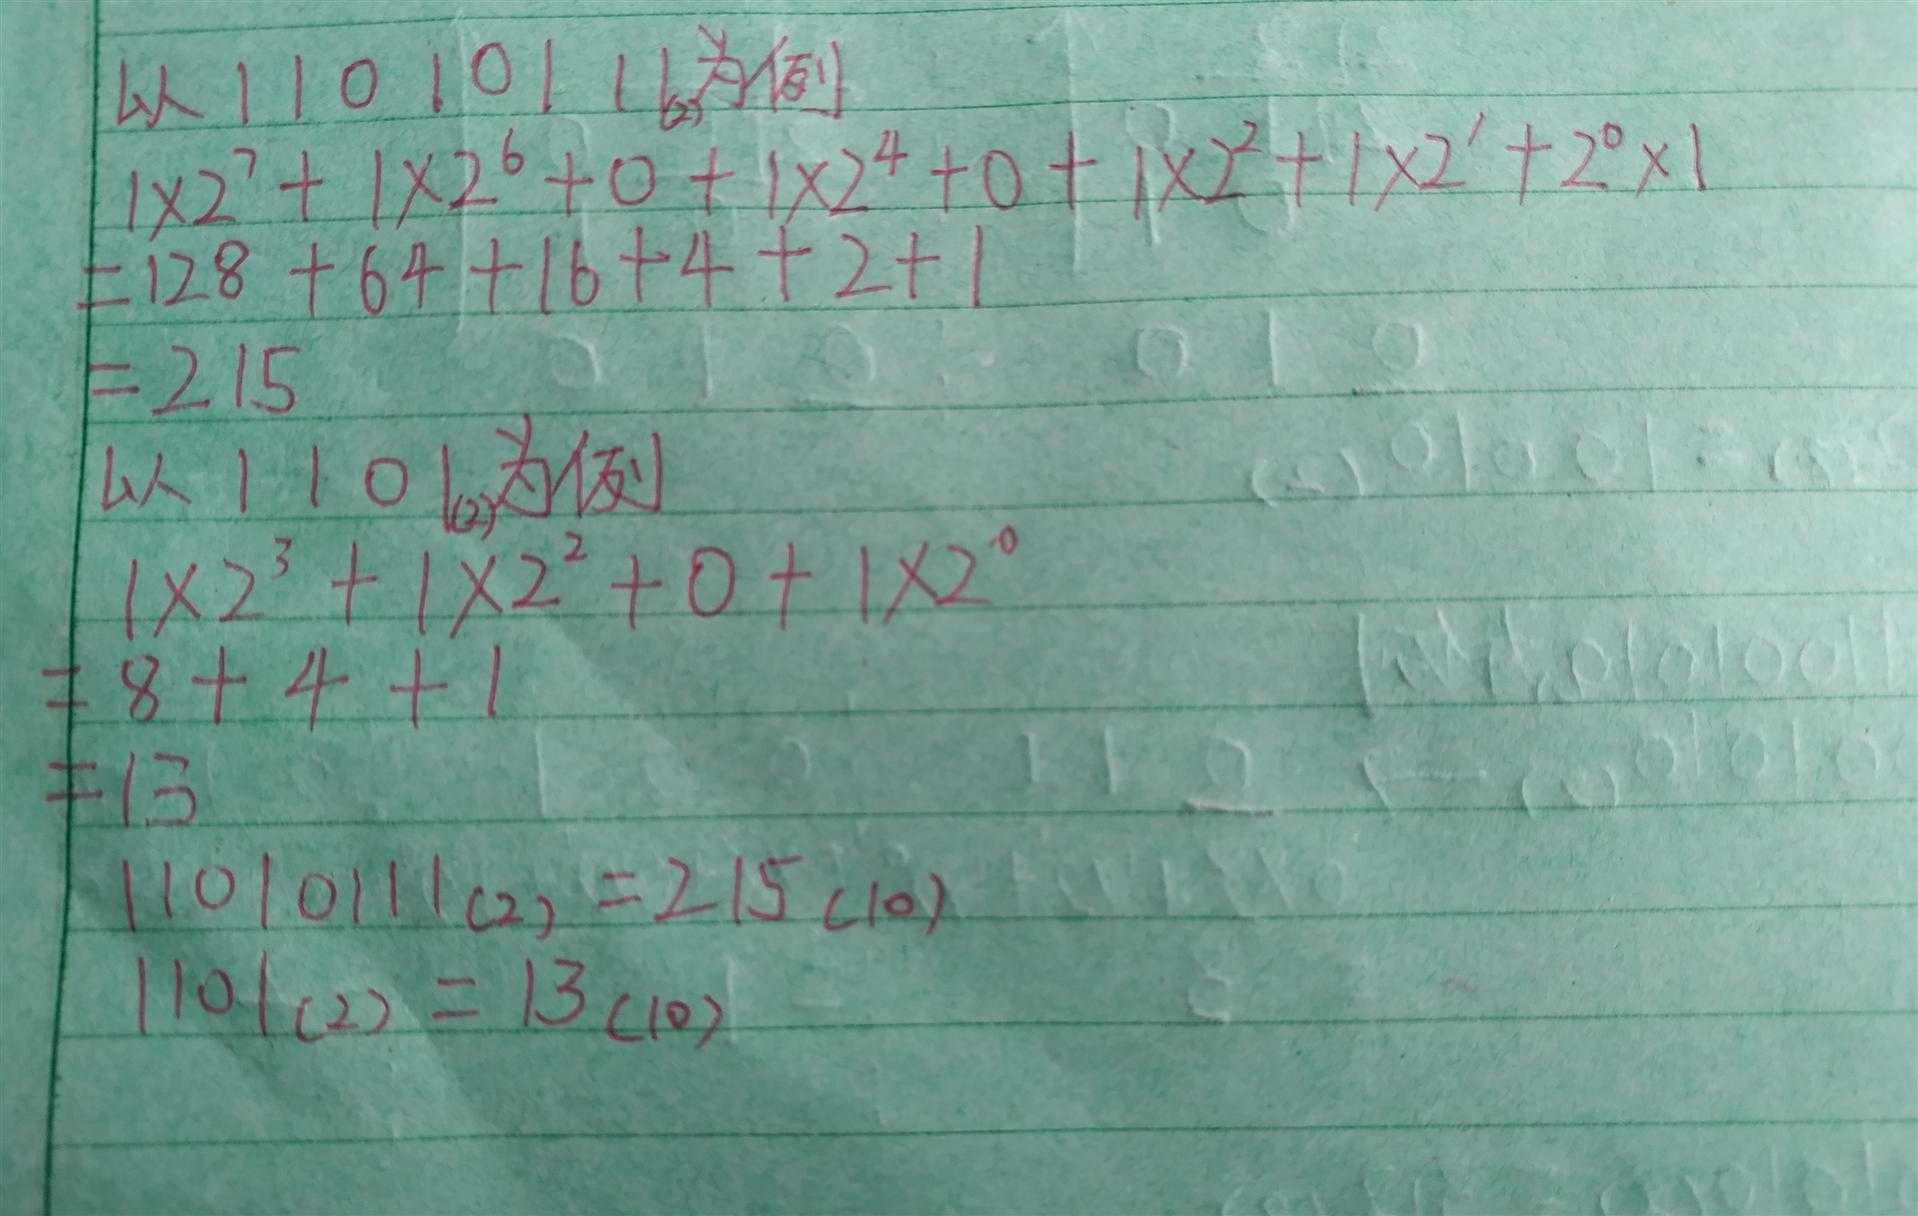 以11010111(2)为例
1×2⁷+1×2⁶+0+1×2⁴+0+1×2²+1×2¹+2⁰×1
=128+64+16+4+2+1
=215
以1101(2)为例
1×2³+1×2²+0+1×2⁰
=8+4+1
=13
11010111(2)=215(10)
1101(2)=13(10)